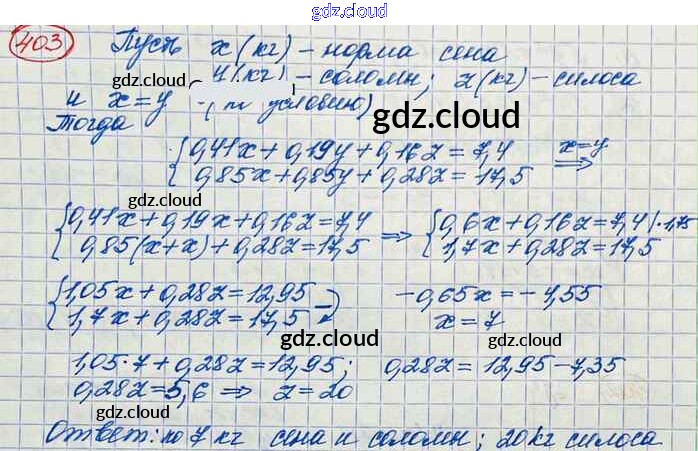 gdz.cloud
403 Пусть x (кг) - норма сена
y (кг) - соломы; z (кг) - силоса
gdz.cloud
и x = y - (по условию)
Тогда
gdz.cloud
{0,41x + 0,19y + 0,16z = 7,4 x=y
{0,85x + 0,85y + 0,28z = 17,5 ⇒
gdz.cloud
{0,41x + 0,19x + 0,16z = 7,4 ⇒ {0,6x + 0,16z = 7,4 | · 1,75
{0,85(x + x) + 0,28z = 17,5 {1,7x + 0,28z = 17,5
gdz.cloud
gdz.cloud
{1,05x + 0,28z = 12,95 -0,65x = -4,55
{1,7x + 0,28z = 17,5 x = 7
gdz.cloud
gdz.cloud
1,05 · 7 + 0,28z = 12,95; 0,28z = 12,95 - 7,35
0,28z = 5,6 ⇒ z = 20
gdz.cloud
gdz.cloud
Ответ: по 7 кг сена и соломы; 20 кг силоса